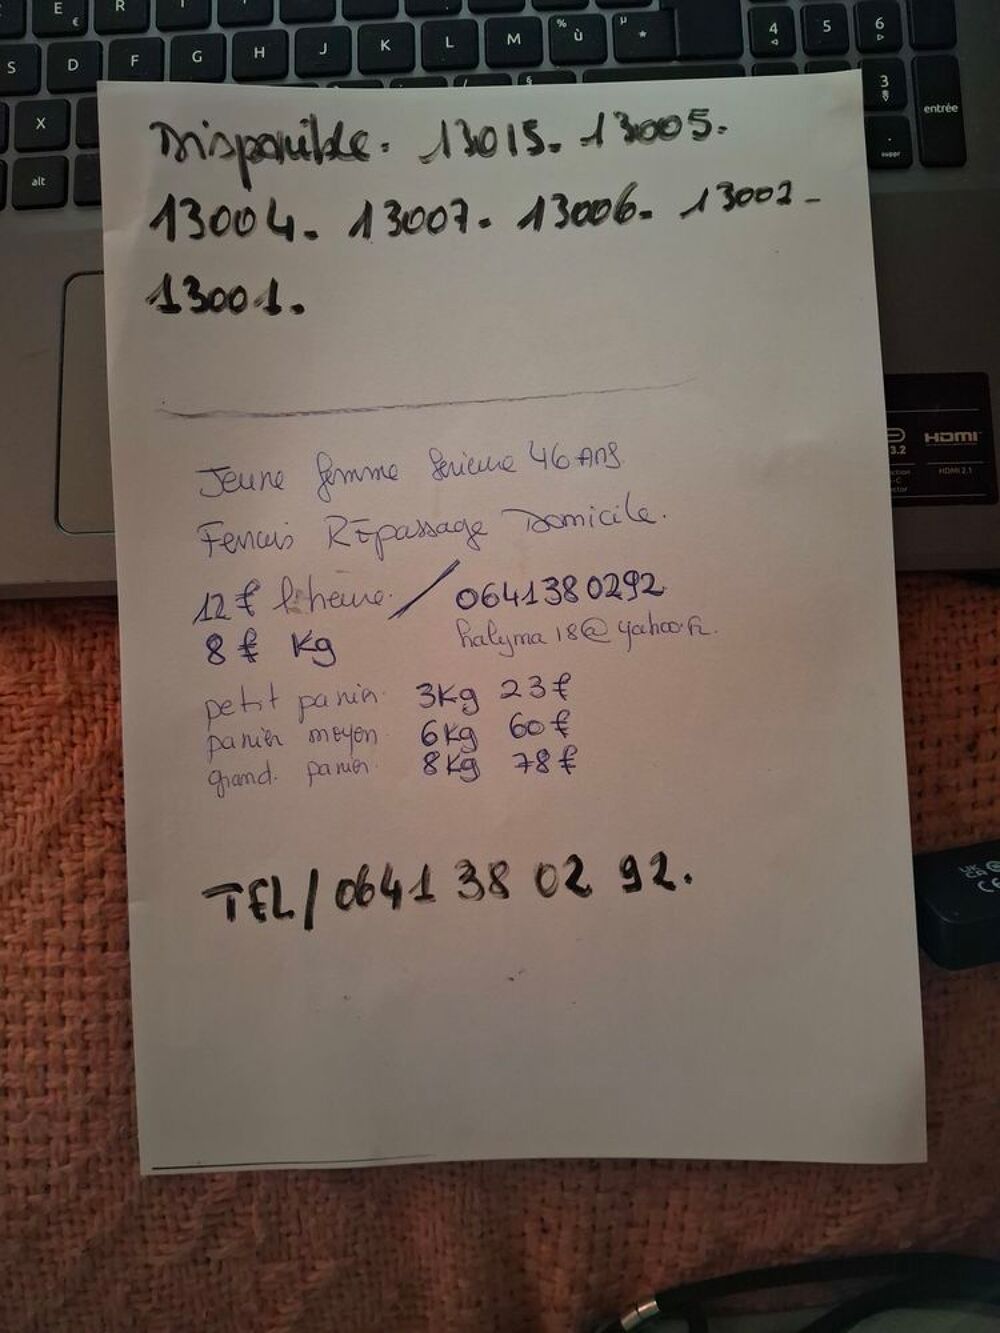 E
€
R
S
D
F
G
H
J
K
L
M
%
ù
µ
*
4
5
6
3
X
alt
.
suppr
entrée
Disponible. 13015. 13005.
13004. 13007. 13006. 13002-
13001.
HDMI
3.2
HDMI 2.1
Jeune femme serieuse 46 ANS
Ferais REpassage Domicile.
12€ l'heure / 0641380292
8€ Kg
halyma18@yahoo.fr.
petit panier 3Kg 23€
panier moyen 6Kg 60€
grand panier 8Kg 78€
TEL/0641 38 02 92.
UK
CA
CE